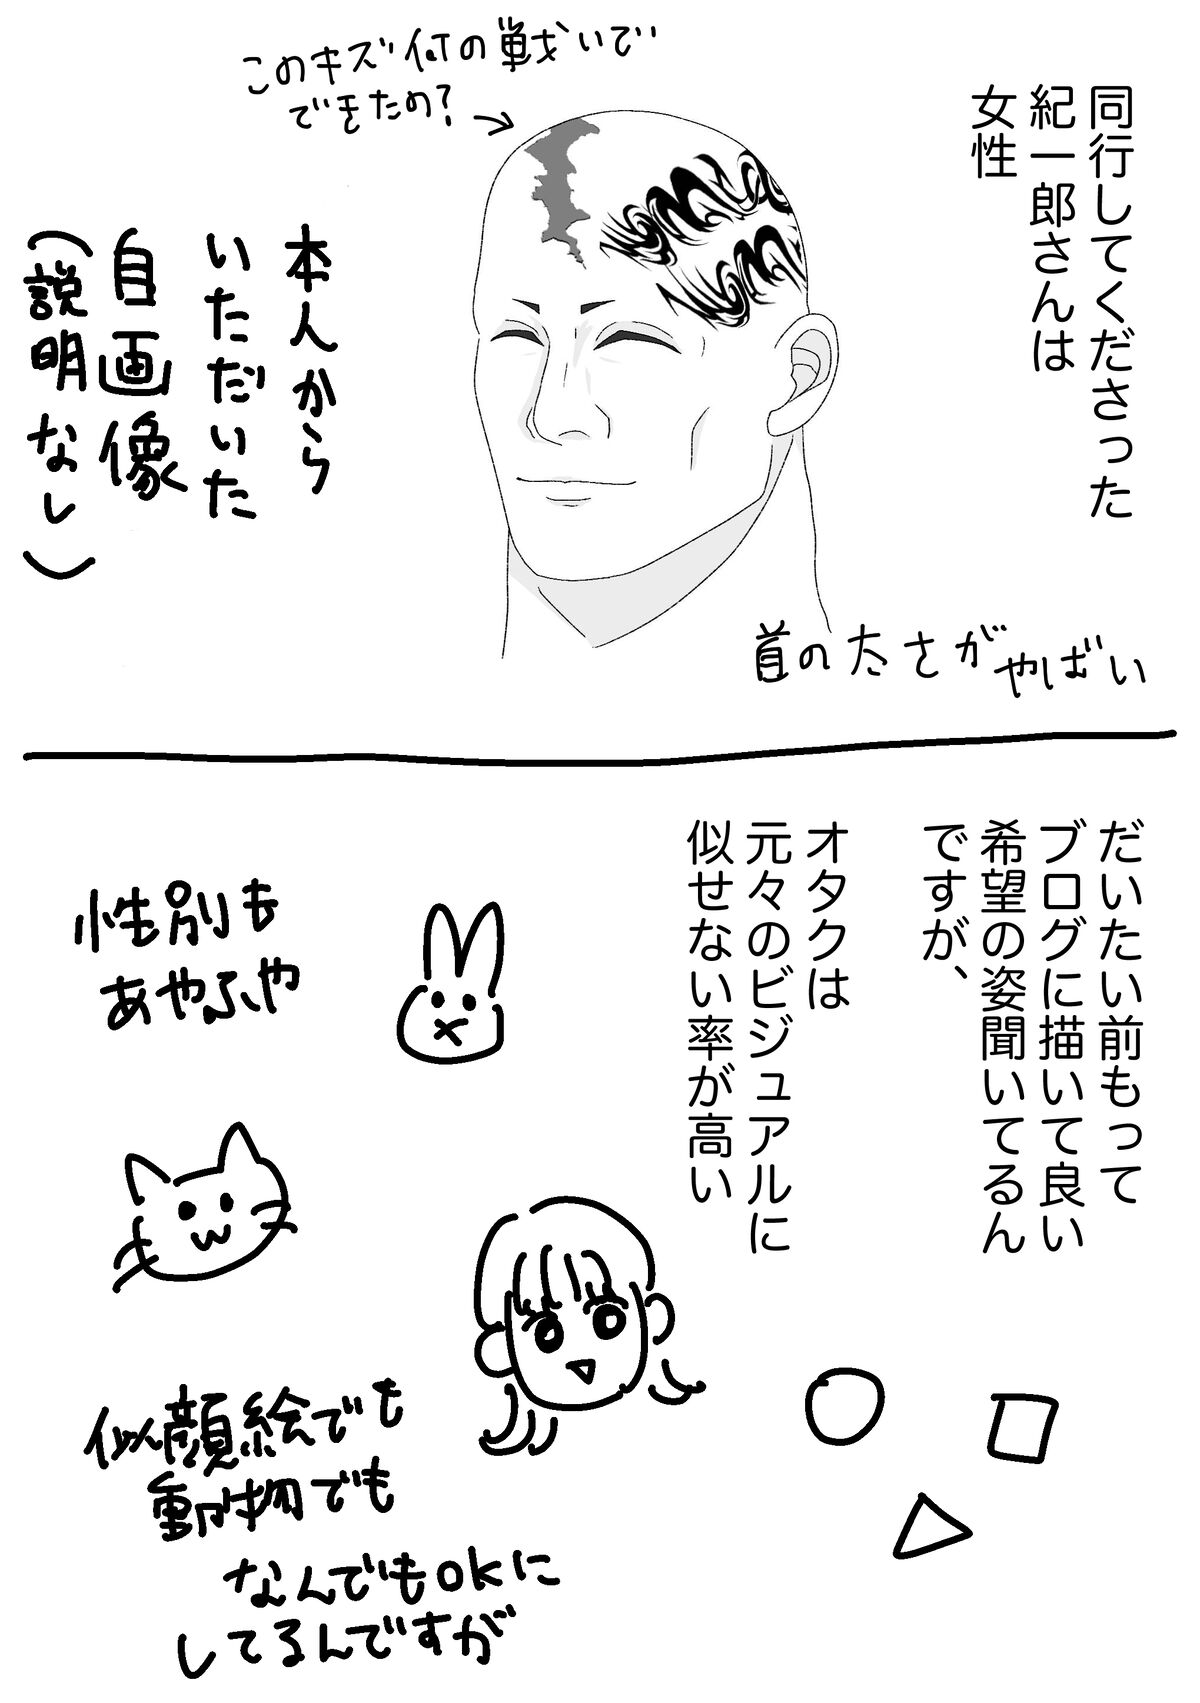 同行してくださった
紀一郎さんは
女性
このキズ何の戦いで
できたの?
本人から
いただいた
自画像
(説明なし)
首の太さが
やばい
だいたい前もって
ブログに描いて良い
希望の姿聞いてるん
ですが、
オタクは
元々のビジュアルに
似せない率が高い
性別も
あやふや
似顔絵でも
動物でも
なんでもokに
してるんですが